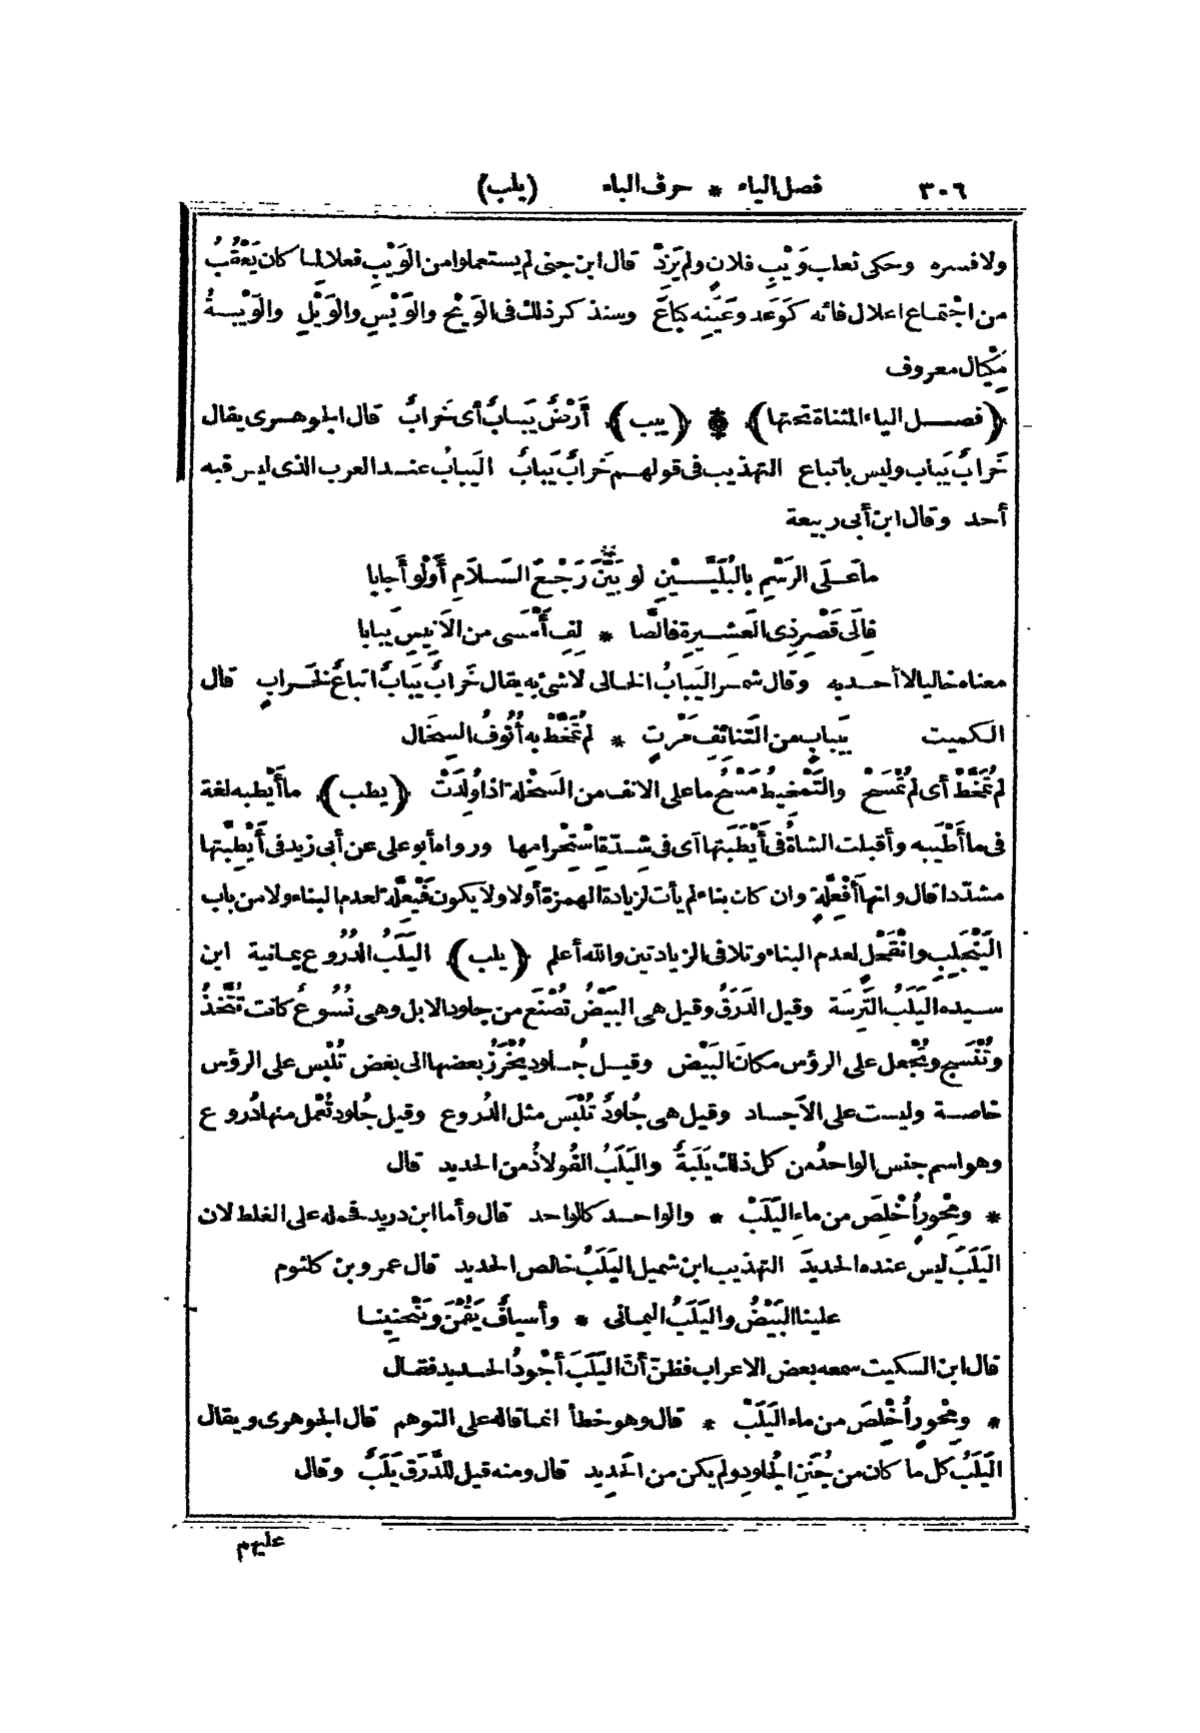 ٣٠٦ فصل الياء * حرف الباء (يلب)
ولا فسره وحكى ثعلب وَيْبِ فلانٍ ولم يَزِدْ قال ابن جنى لم يستعملوا من الوَيْبِ فعلا لما كان يَعْقُبُ
من اجْتماع اعلال فائه كَوَعَد وعَيْنِه كباعَ وسنذكر ذلك فى الوَيْحِ والوَيْسِ والوَيْلِ والوَيْبــةُ
مِكْيال معروف
(فصــل الياء المثناة تحتها) * (يبب) أَرْضٌ يَبابٌ أى خَرابٌ قال الجوهرى يقال
خَرابٌ يَباب وليس باتباع التهذيب فى قولهــم خَرابٌ يَبابٌ اليَبابُ عنــد العرب الذى ليس فيه
أحد وقال ابن أبى ربيعة
ما عَــلَى الرَسْمِ بالبُلَيَّــيْنِ لو بَيَّنَ رَجْـعَ السَــلَامِ أَوْلو أَجابا
فإِلَى قَصْرِ ذِى العَشِــيرةِ فالصَّا * لِفِ أَمْسَى من الأَنِيسِ يَبابا
معناه خاليا لا أحــد به وقال شمــر اليَبابُ الخالى لا شئ به يقال خَرابٌ يَبابٌ اتباعٌ لخَــرابٍ قال
الكميت بِيَبابٍ من التَنائِفِ مَرْتٍ * لم تُمَخَّطْ به أُنُوفُ السِخَال
لم تُمَخَّطْ أى لم تُمْسَحْ والتَمْخِيطُ مَسْحُ ما على الانف من السَخْلة اذا وُلِدَتْ (يطب) ما أَيْطَبه لغة
فى ما أَطْيَبه وأقبلت الشاةُ فى أَيْطَبَتِها أى فى شِــدّةِ اسْتِحْرامِها ورواه أبو على عن أبى زيد فى أَيْطَبَّتِها
مشدّدا قال وانها أَفْعِلَّةٍ وان كان بناء لم يأت لزيادة الهمزة أولا ولا يكون فَيْعِلَّة لعدم البناء ولا من باب
اليَنْجَلِبِ وانْقَحْل لعدم البناء وتلافى الزيادتين والله أعلم (يلب) اليَلَبُ الدُرُوع يمانية ابن
ســيده اليَلَبُ التِرَسَة وقيل الدَرَقُ وقيل هى البَيْضُ تُصْنَع من جلود الابل وهى نُسُوعٌ كانت تُتَّخَذُ
وتُنْسَج وتُجْعل على الرؤس مكانَ البَيْض وقيــل جُلــود يُخْرَزُ بعضها الى بعض تُلْبَس على الرؤس
خاصــة وليست على الأَجساد وقيل هى جُلودٌ تُلْبَس مثل الدُروع وقيل جُلود تُعْمل منها دُروع
وهو اسم جنس الواحدُ من كل ذلك يَلَبَةٌ واليَلَبُ الفُولاذُ من الحديد قال
* ومِحْورٍ أُخْلِصَ من ماءِ اليَلَبْ * والواحــد كالواحد قال وأما ابن دريد فحمله على الغلط لان
اليَلَبَ ليس عنده الحديدَ التهذيب ابن شميل اليَلَبُ خالص الحديد قال عمرو بن كلثوم
علينا البَيْضُ واليَلَبُ اليمانى * وأسيافٌ يَقُمْنَ ويَنْحَنِينــا
قال ابن السكيت سمعه بعض الاعراب فظنّ أنّ اليَلَبَ أجْودُ الحــديد فقــال
* ومِحْورٍ أُخْلِصَ من ماء اليَلَبْ * قال وهو خطأ انمــا قاله على التوهم قال الجوهرى ويقال
اليَلَبُ كل ما كان من جُنَنِ الجُلودِ ولم يكن من الحَدِيد قال ومنه قيل للدَّرَق يَلَبٌ وقال
عليهم